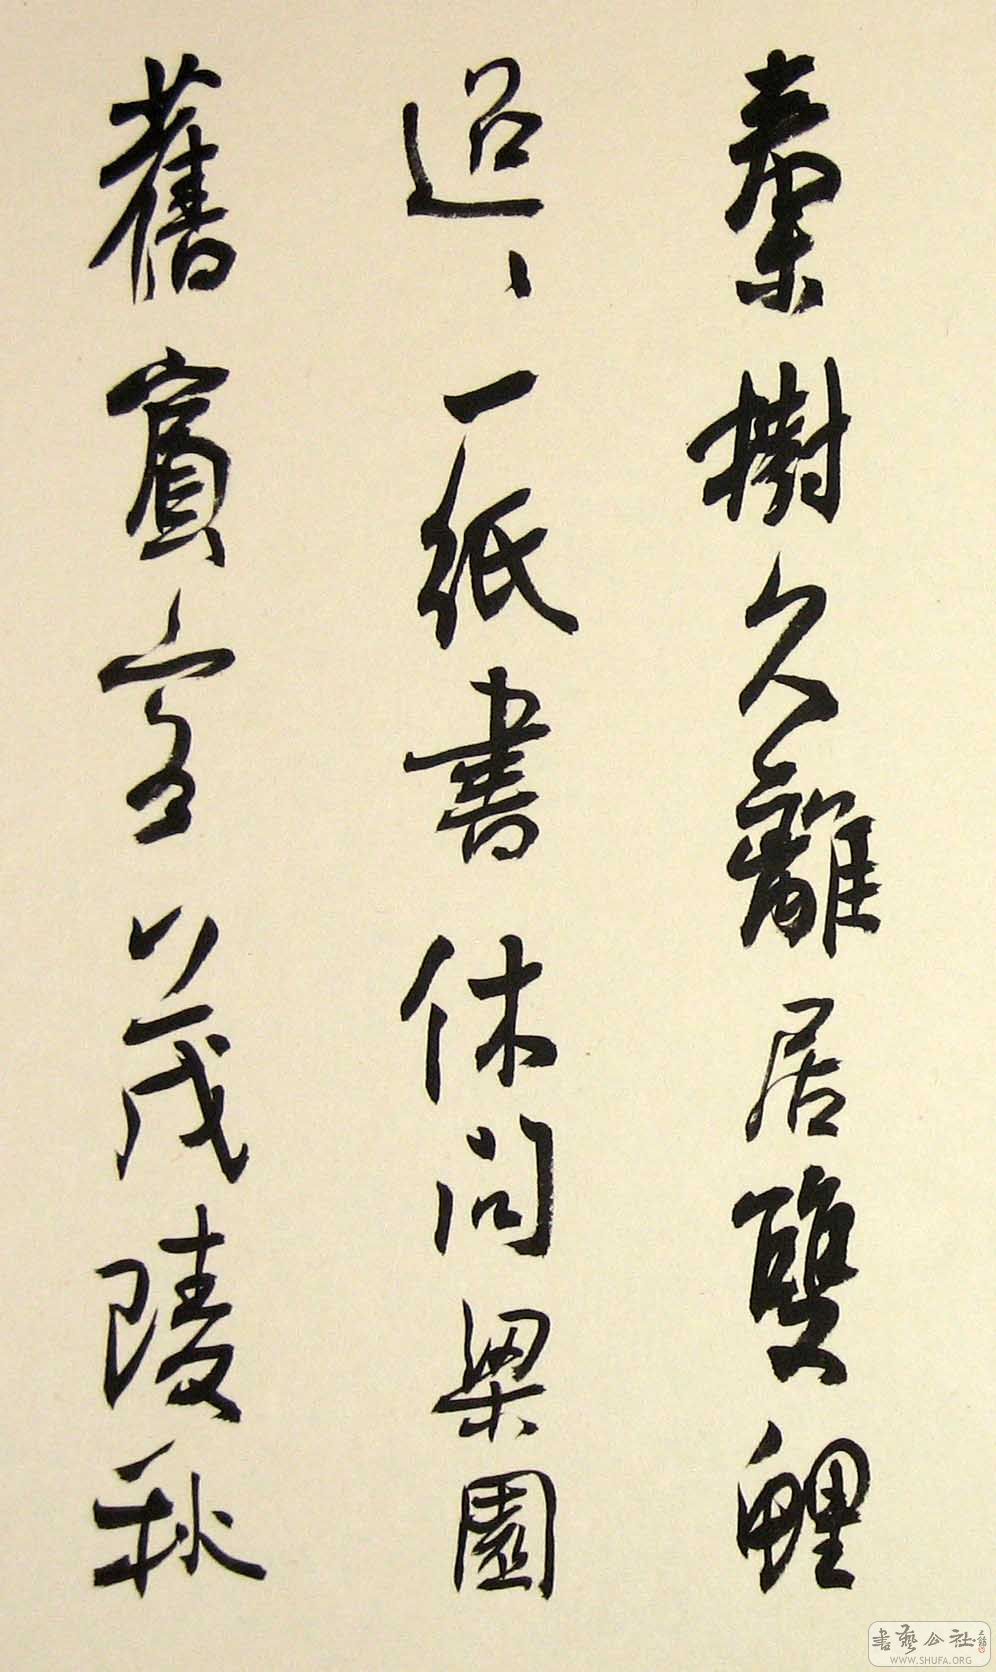 秦樹久離居雙鯉
迢〻一紙書休問梁園
舊賓客茂陵秋
書藝公社
WWW.SHUFA.ORG